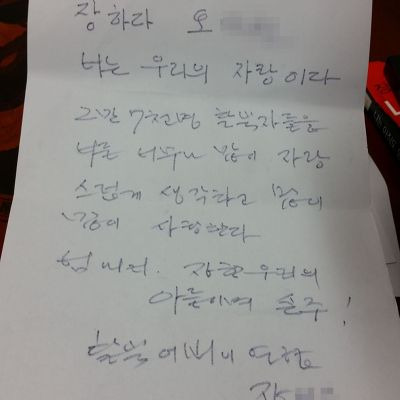 장하다 오
너는 우리의 자랑이다
2만 7천명 탈북자들은
너를 너무나 많이 자랑
스럽게 생각하고 많이
많이 사랑한다
힘내라. 장한 우리의
아들이며 손주!
탈북어버이연합
장